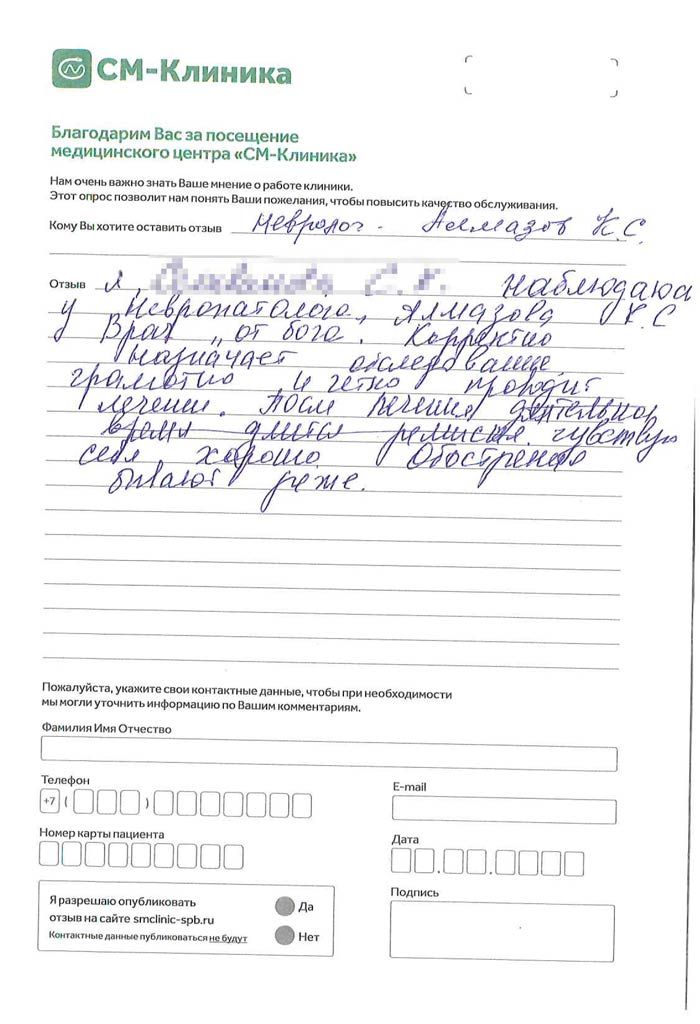 СМ-Клиника
Благодарим Вас за посещение
медицинского центра «СМ-Клиника»
Нам очень важно знать Ваше мнение о работе клиники.
Этот опрос позволит нам понять Ваши пожелания, чтобы повысить качество обслуживания.
Кому Вы хотите оставить отзыв невролог - Аллмазов К.С.
Отзыв Я, наблюдаюсь
у Невропатолога, Алмазова К.С
Врач „от бога. Корректно
назначает обследование,
грамотно и четко проводит
лечение. После лечения длительное
время длится ремиссия. чувствую
себя хорошо. Обострения
бывают реже.
Пожалуйста, укажите свои контактные данные, чтобы при необходимости
мы могли уточнить информацию по Вашим комментариям.
Фамилия Имя Отчество
Телефон
E-mail
+7 ( )
Номер карты пациента
Дата
Подпись
Я разрешаю опубликовать
отзыв на сайте smclinic-spb.ru
Контактные данные публиковаться не будут
Да
Нет